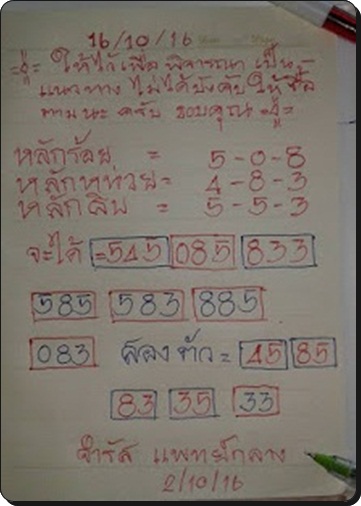 16/10/16
=สู่= ให้ไว้เพื่อ พิจารณา เป็น
แนวทาง ไม่ได้บังคับให้ซื้อ
ตามนะ ครับ ขอบคุณ =สู่=
หลักร้อย = 5-0-8
หลักหน่วย = 4-8-3
หลักสิบ = 5-5-3
จะได้ =545 085 833
585 583 885
083 สองตัว = 45 85
83 35 33
จำรัส แพทย์กลาง
2/10/16